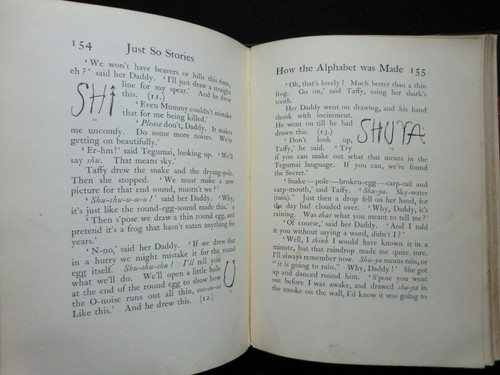 154 Just So Stories
'We won't have beavers or hills this time,
eh?' said her Daddy. 'I'll just draw a straight
line for my spear.' And he drew
this. (11.)
SHI
'Even Mummy couldn't mistake
that for me being killed.'
'Please don't, Daddy. It makes
me uncomfy. Do some more noises. We're
getting on beautifully.'
'Er-hm!' said Tegumai, looking up. 'We'll
say shu. That means sky.'
Taffy drew the snake and the drying-pole.
Then she stopped. 'We must make a new
picture for that end sound, mustn't we?'
'Shu-shu-u-u-u!' said her Daddy. 'Why,
it's just like the round-egg-sound made thin.'
'Then s'pose we draw a thin round egg, and
pretend it's a frog that hasn't eaten anything for
years.'
'N-no,' said her Daddy. 'If we drew it
in a hurry we might mistake it for the round
egg itself. Shu-shu-shu! I'll tell you
what we'll do. We'll open a little hole
at the end of the round egg to show how
the O-noise runs out all thin, ooo-oo-oo.
Like this.' And he drew this. (12.)
U
How the Alphabet was Made 155
'Oh, that's lovely! Much better than a thin
frog. Go on,' said Taffy, using her shark's
tooth.
Her Daddy went on drawing, and his hand
shook with incitement.
He went on till he had
drawn this. (13.)
SHUYA
'Don't look up,
Taffy,' he said. 'Try
if you can make out what that means in the
Tegumai language. If you can, we've found
the Secret.'
'Snake—pole—broken-egg—carp-tail and
carp-mouth,' said Taffy. 'Shu-ya. Sky-water
(rain).' Just then a drop fell on her hand, for
the day had clouded over. 'Why, Daddy, it's
raining. Was that what you meant to tell me?'
'Of course,' said her Daddy. 'And I told
it you without saying a word, didn't I?'
'Well, I think I would have known it in a
minute, but that raindrop made me quite sure.
I'll always remember now. Shu-ya means rain, or
"it is going to rain." Why, Daddy!' She got
up and danced round him. 'S'pose you went
out before I was awake, and drawed shu-ya in
the smoke on the wall, I'd know it was going to